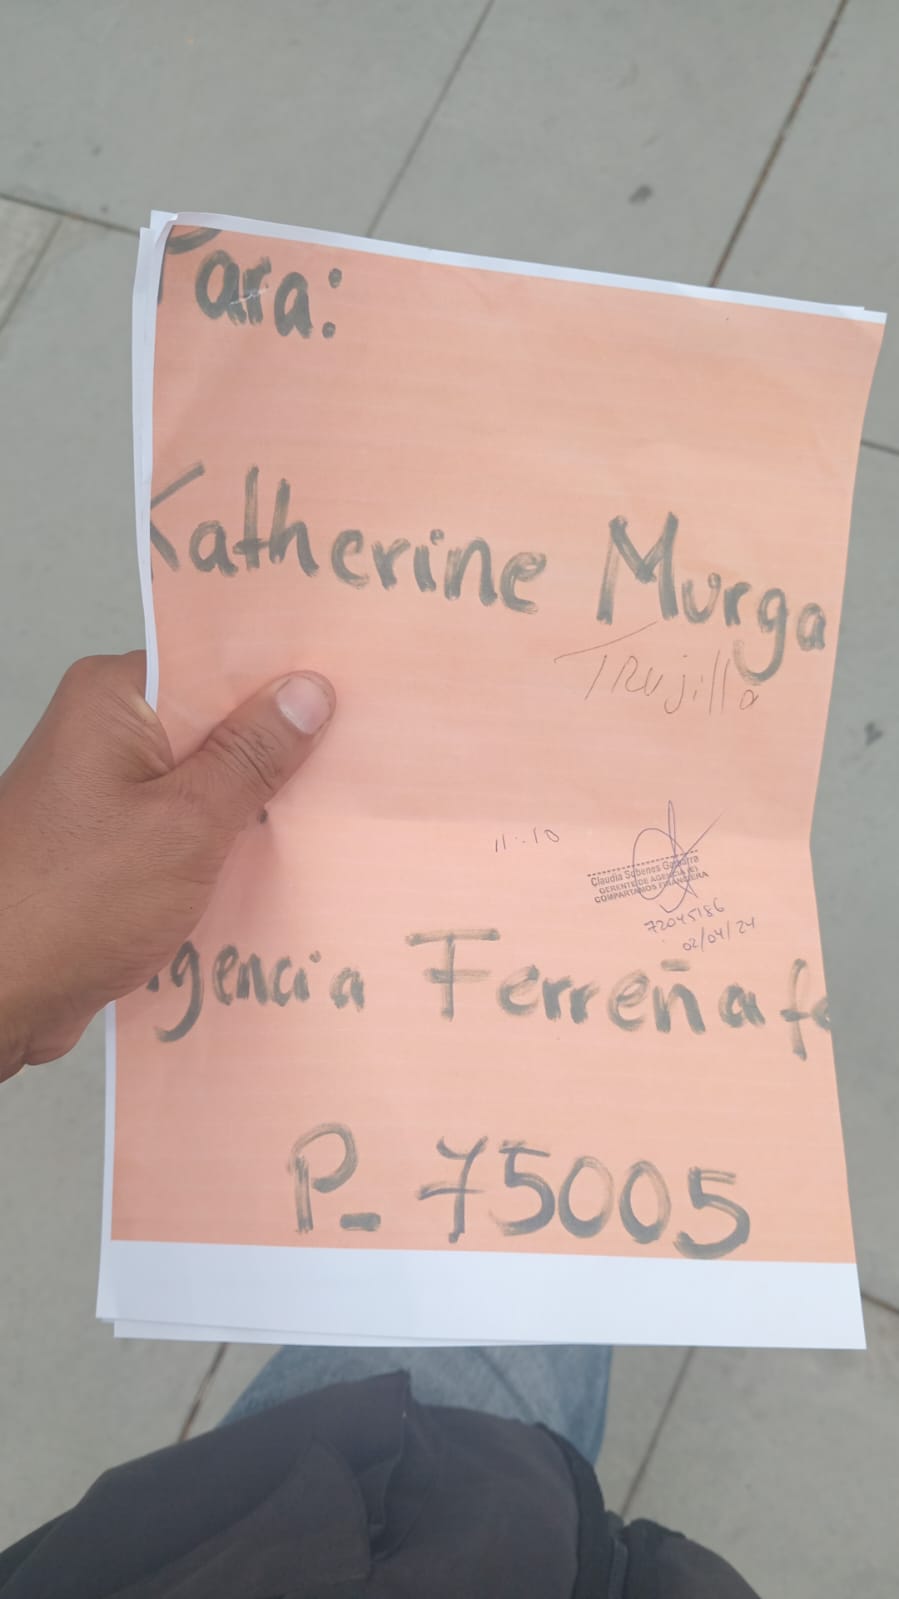 Para:
Katherine Murga
Trujillo
11:10
Claudia Sobenes
GERENTE DE AGENCIA (E)
COMPARTAMOS FINANCIERA
72045186
02/04/24
Agencia Ferreñafe
P- 75005